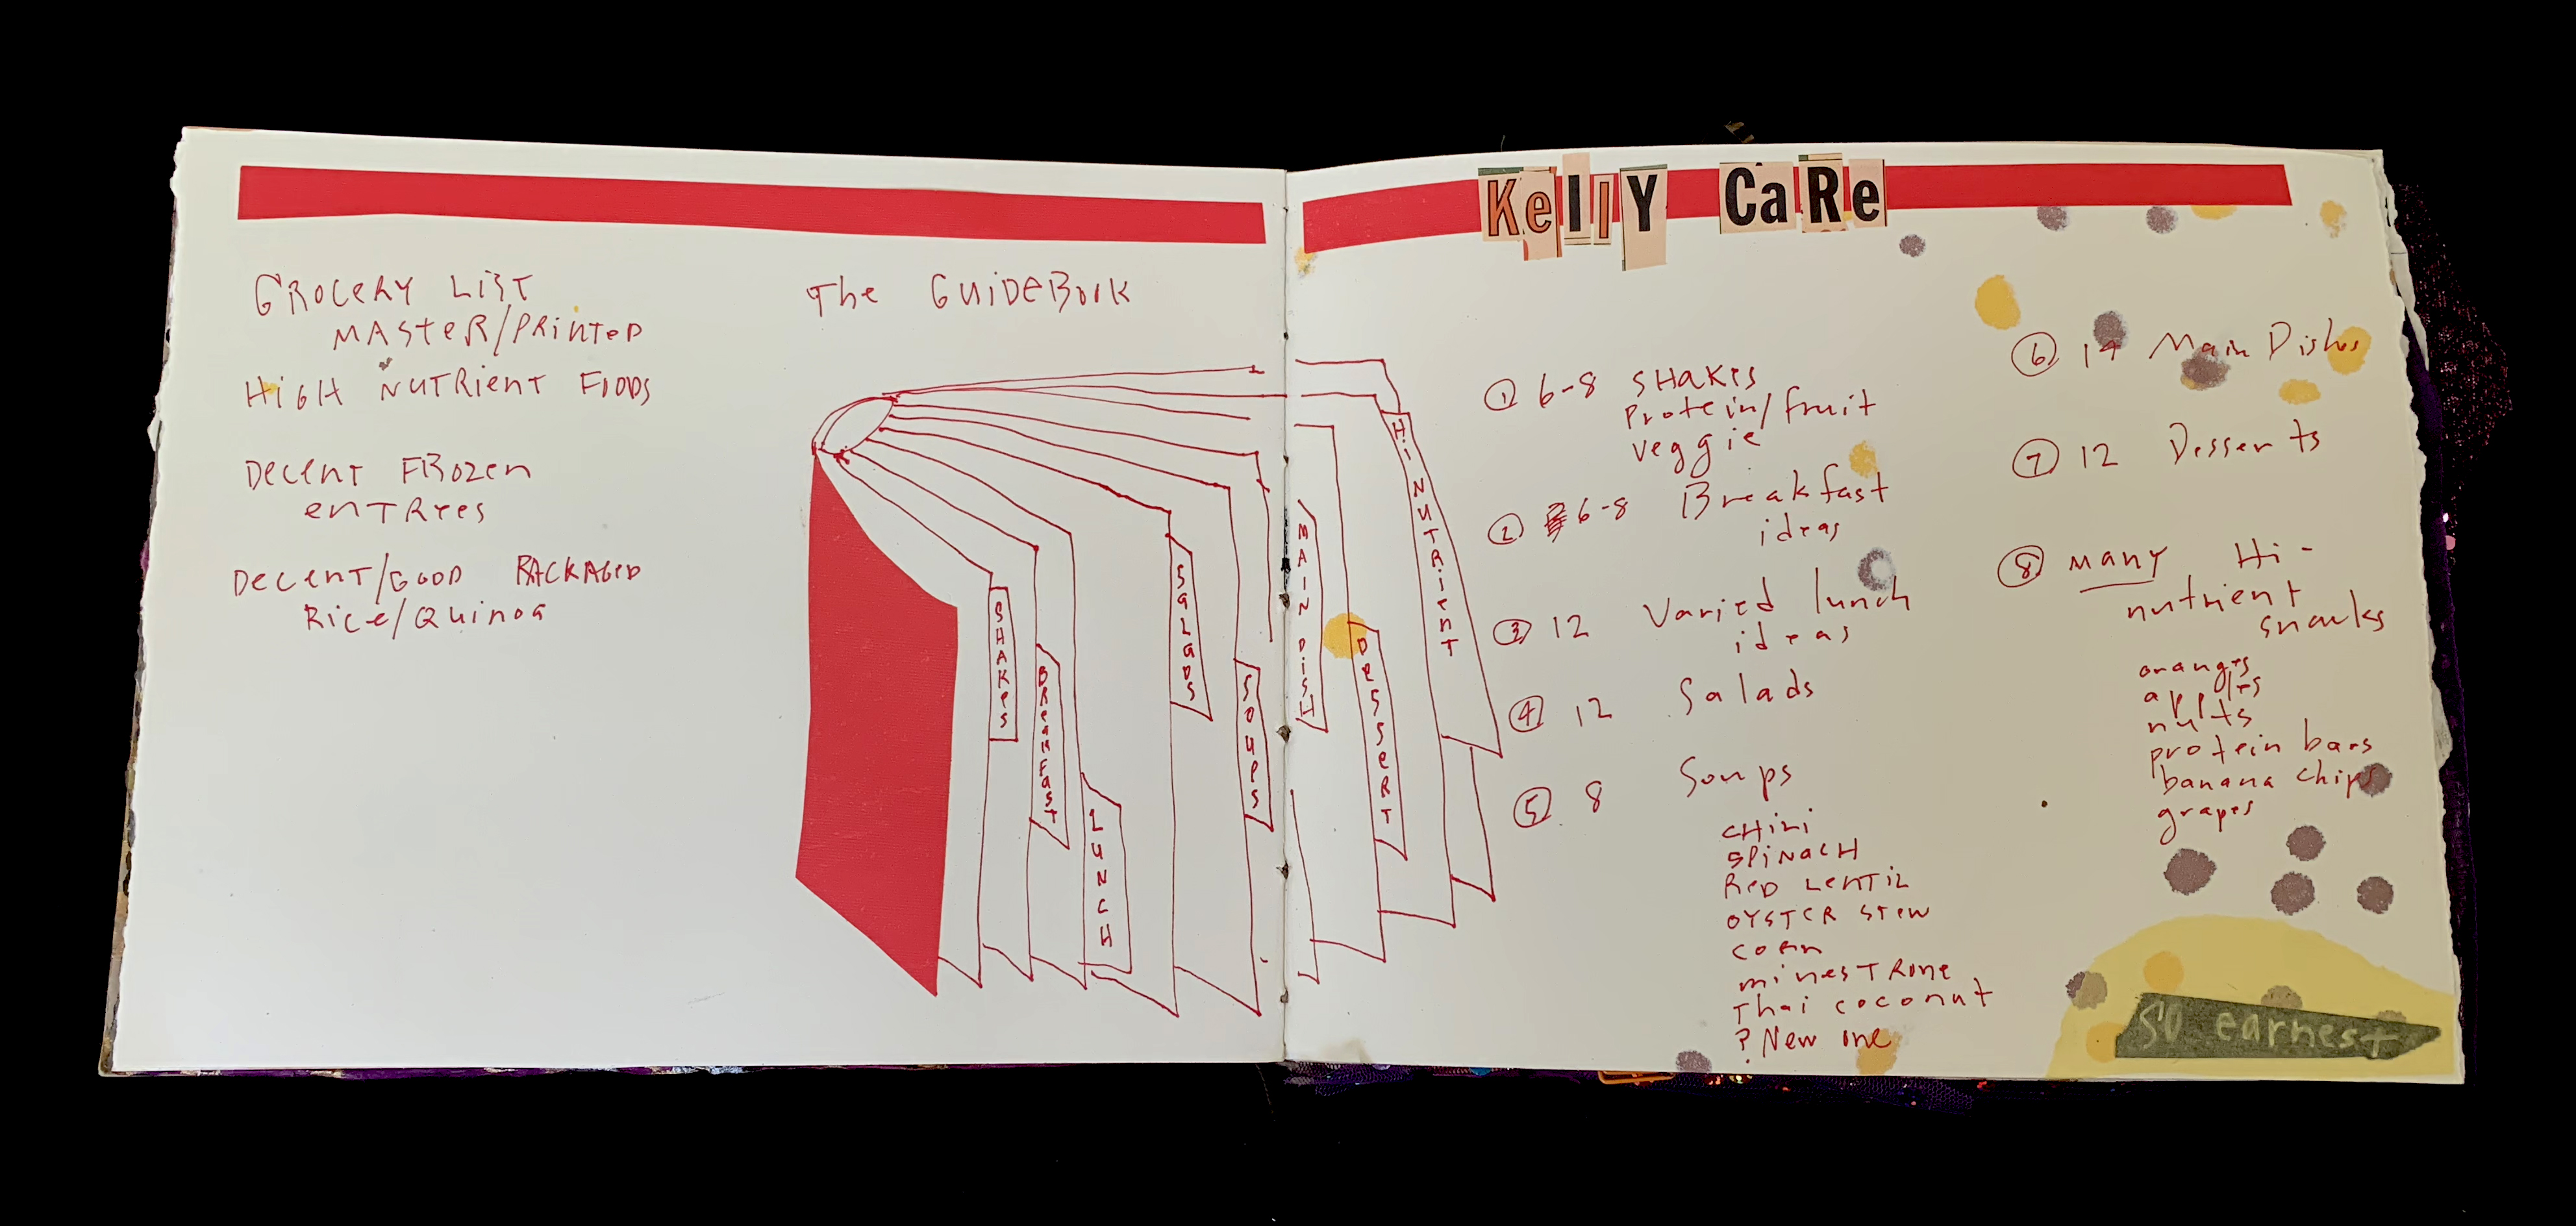 GROCERY LIST
MASTER/PRINTED
HIGH NUTRIENT FOODS
DECENT FROZEN
ENTREES
DECENT/GOOD PACKAGED
RICE/QUINOA
The GUIDEBOOK
SHAKES
BREAKFAST
LUNCH
SALADS
SOUPS
MAIN DISH
DESSERT
HI NUTRIENT
KellY CaRe
① 6-8 SHAKES
Protein/fruit
veggie
② 6-8 Breakfast
ideas
③ 12 Varied lunch
ideas
④ 12 Salads
⑤ 8 Soups
CHILI
SPINACH
RED LENTIL
OYSTER STEW
CORN
MINESTRONE
Thai coconut
? New one
⑥ 14 Main Dishes
⑦ 12 Desserts
⑧ many Hi-
nutrient
snacks
oranges
apples
nuts
protein bars
banana chips
grapes
SO earnest